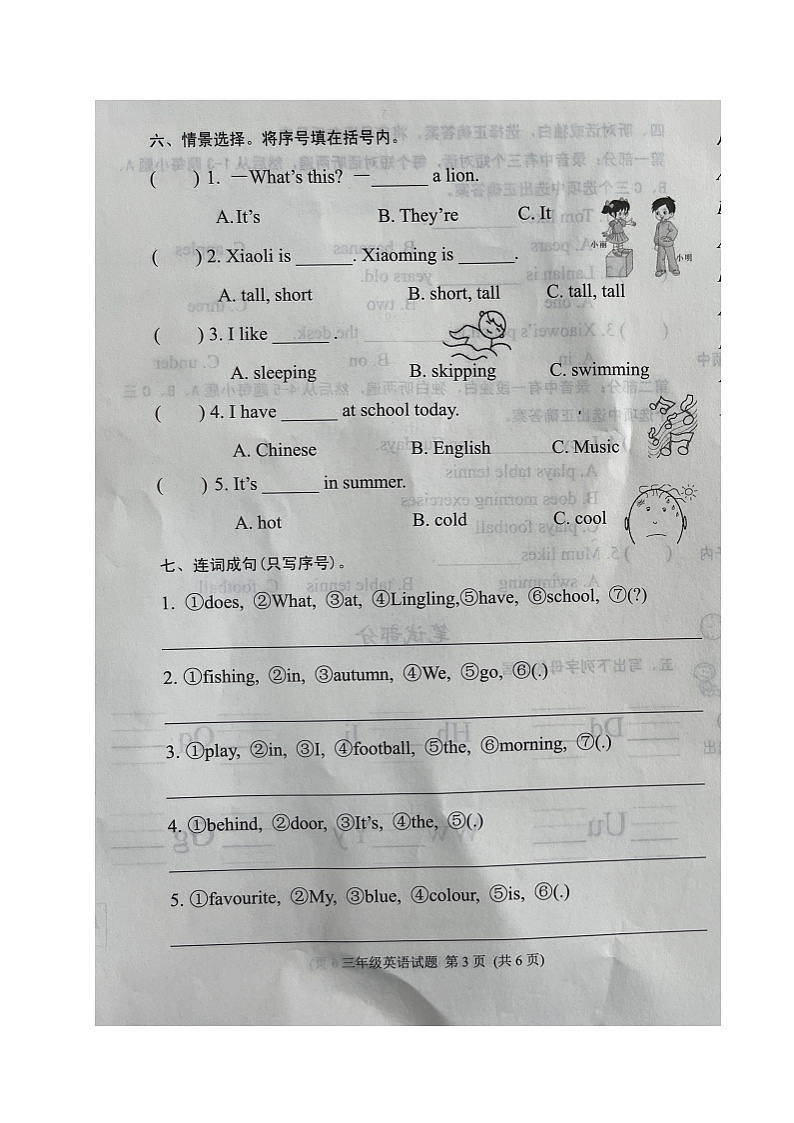 六、情景选择。将序号填在括号内。
(  ) 1. —What's this? —______ a lion.
A. It's B. They're C. It
小丽 小明
(  ) 2. Xiaoli is ______. Xiaoming is ______.
A. tall, short B. short, tall C. tall, tall
(  ) 3. I like ______ .
A. sleeping B. skipping C. swimming
(  ) 4. I have ______ at school today.
A. Chinese B. English C. Music
(  ) 5. It's ______ in summer.
A. hot B. cold C. cool
七、连词成句(只写序号)。
1. ①does, ②What, ③at, ④Lingling,⑤have, ⑥school, ⑦(?)
2. ①fishing, ②in, ③autumn, ④We, ⑤go, ⑥(.)
3. ①play, ②in, ③I, ④football, ⑤the, ⑥morning, ⑦(.)
4. ①behind, ②door, ③It's, ④the, ⑤(.)
5. ①favourite, ②My, ③blue, ④colour, ⑤is, ⑥(.)
三年级英语试题 第 3 页 (共 6 页)